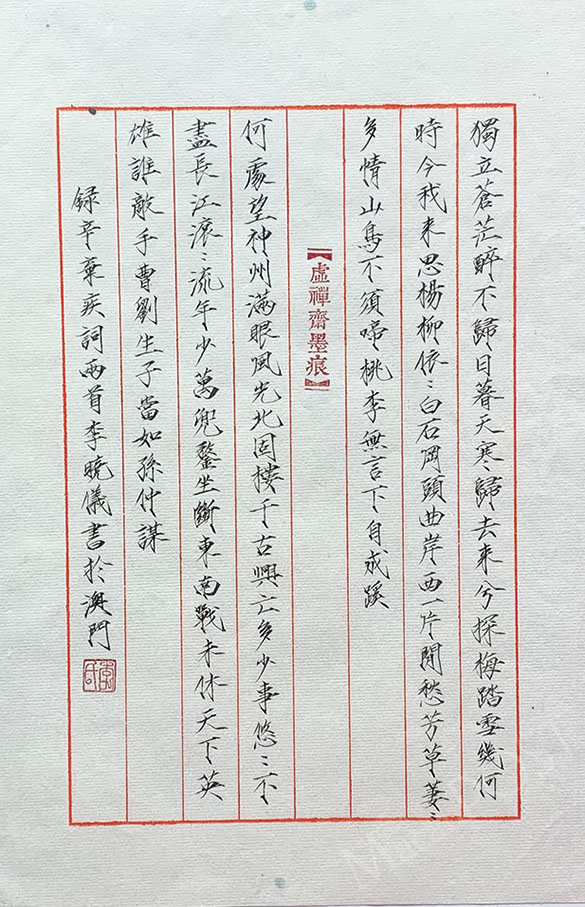 獨立蒼茫醉不歸日暮天寒歸去來兮探梅踏雪幾何
時今我來思楊柳依〻白石岡頭曲岸西一片閒愁芳草萋〻
多情山鳥不須啼桃李無言下自成蹊
【虛禪齋墨痕】
何處望神州滿眼風光北固樓千古興亡多少事悠〻不
盡長江滾〻流年少萬兜鍪坐斷東南戰未休天下英
雄誰敵手曹劉生子當如孫仲謀
録辛棄疾詞兩首李曉儀書於澳門